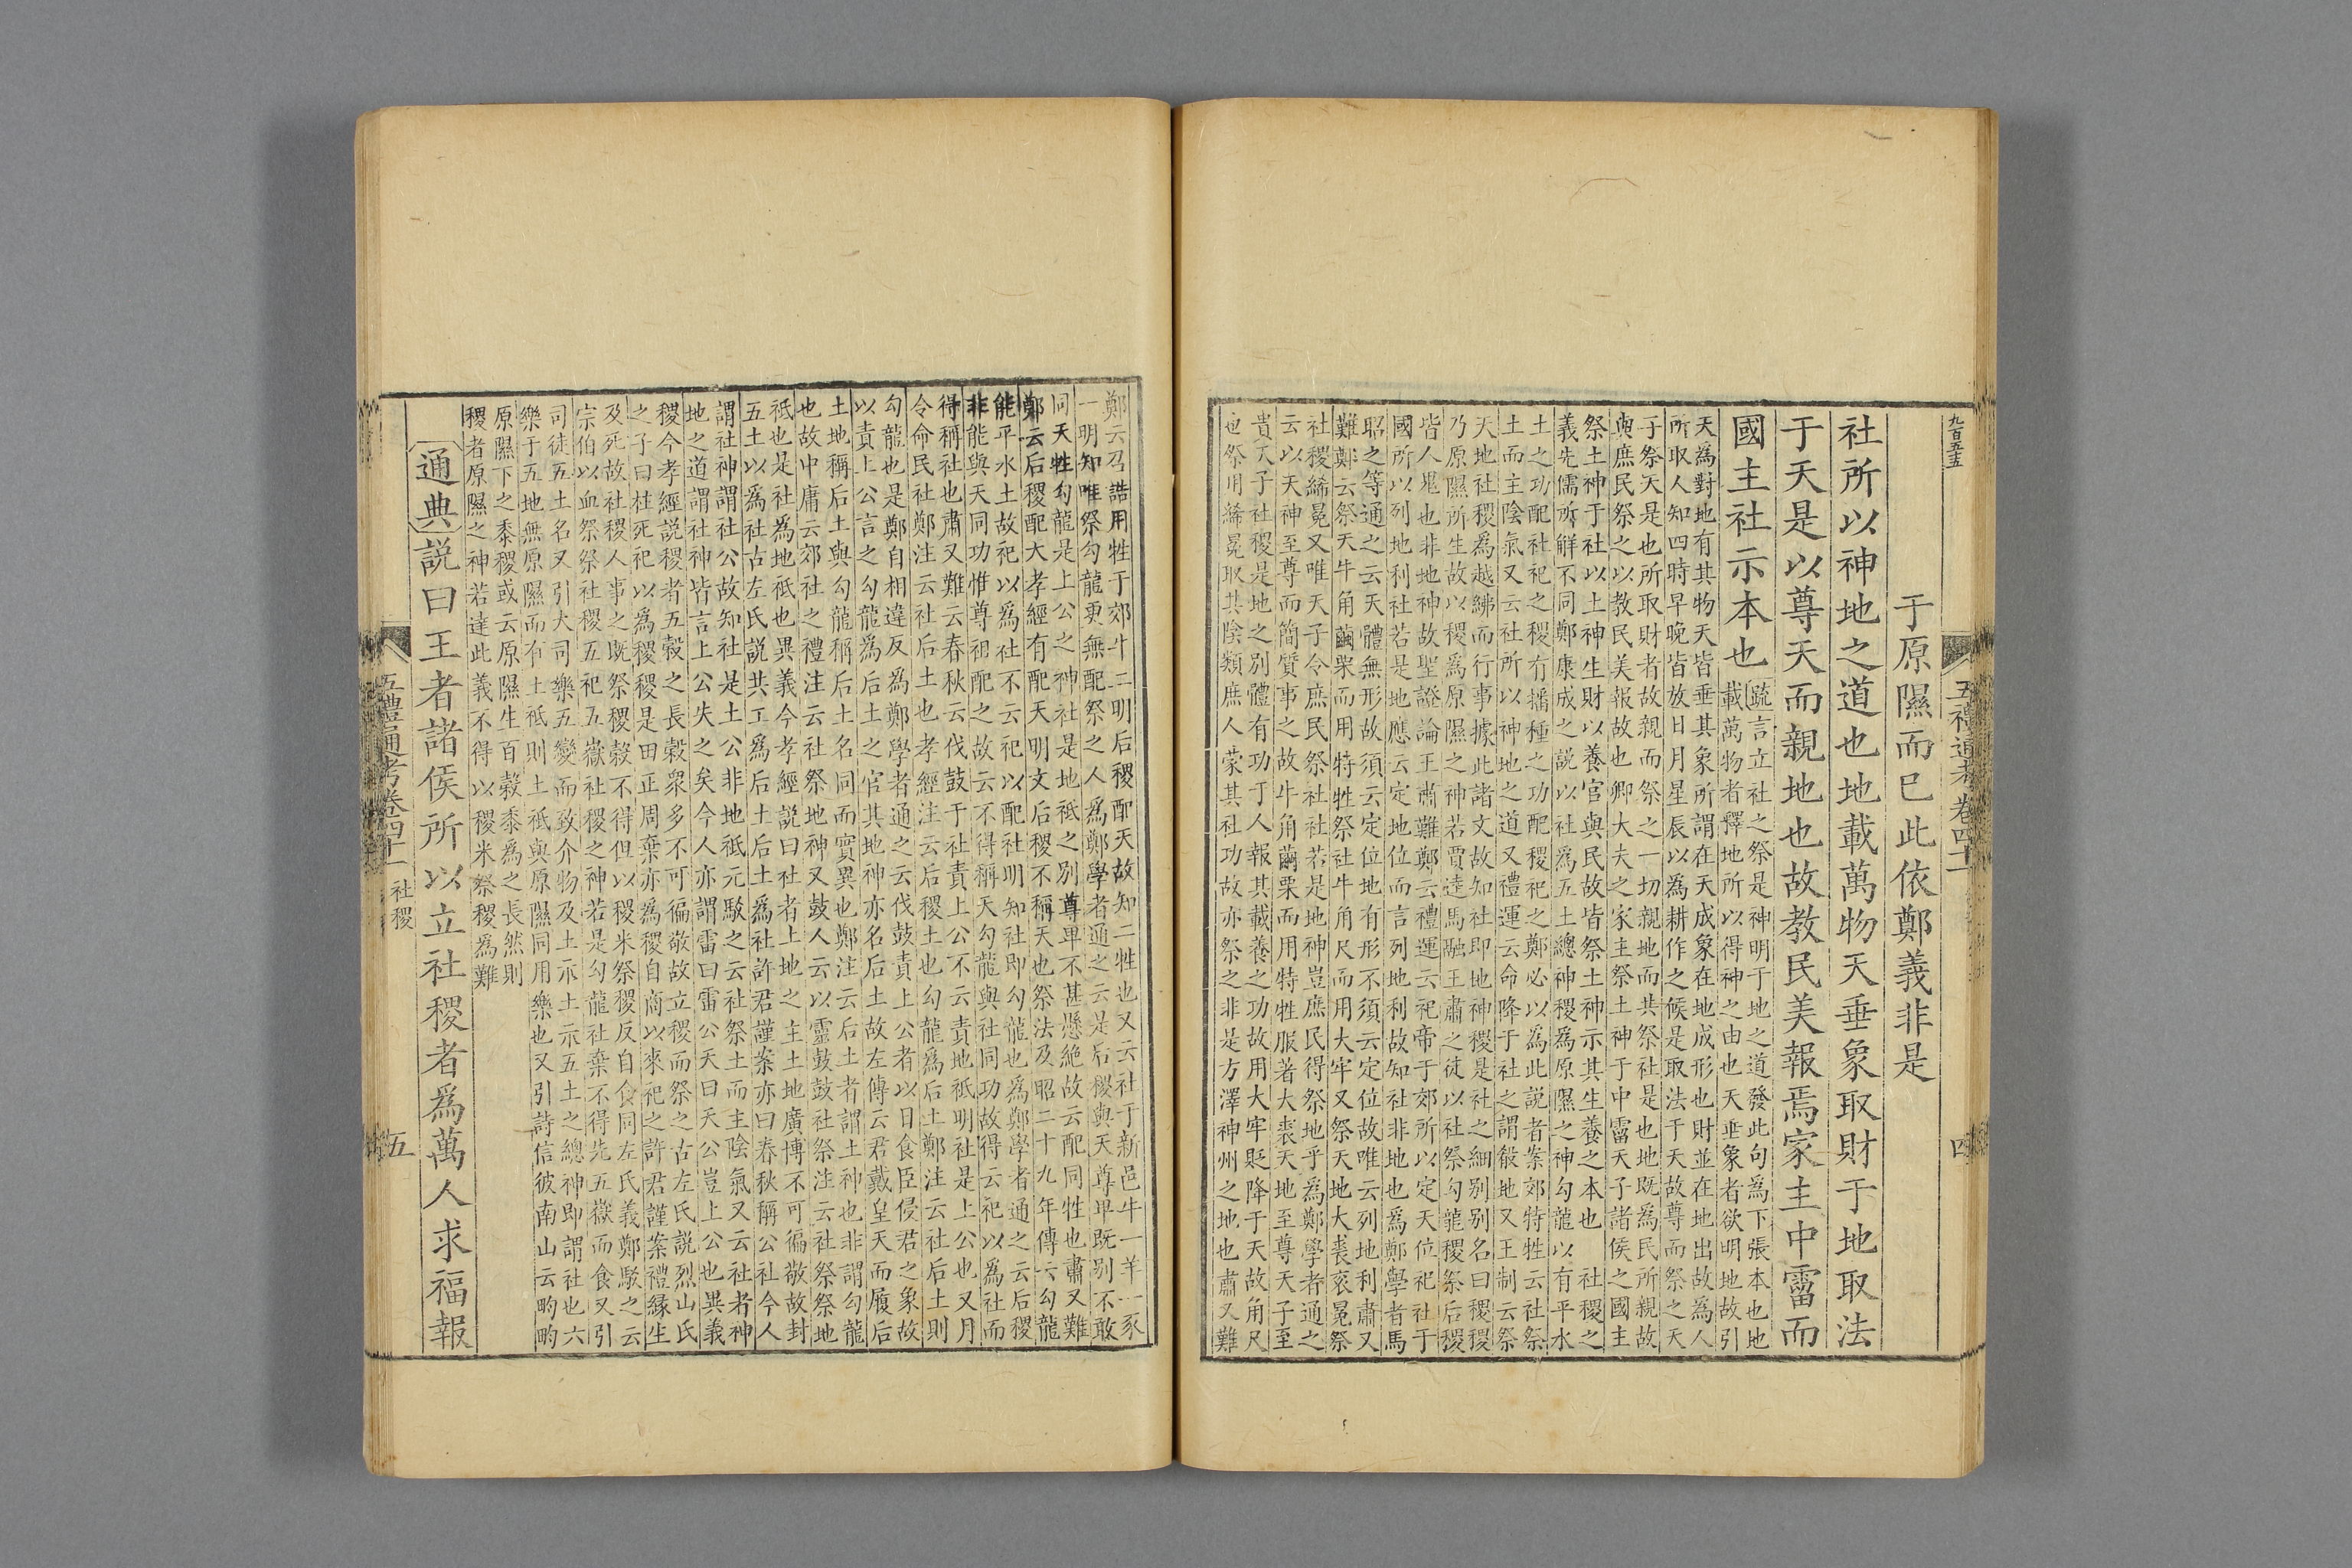 九百五十五
五禮通考卷四十一
四
于原隰而已此依鄭義非是
社所以神地之道也地載萬物天垂象取財于地取法
于天是以尊天而親地也故教民美報焉家主中霤而
國主社示本也
疏言立社之祭是神明于地之道發此句為下張本也地
載萬物者釋地所以得神之由也天垂象者欲明地故引
天為對地有其物天皆垂其象所謂在天成象在地成形也財並在地出故為人
所取人知四時早晚皆放日月星辰以為耕作之候是取法于天故尊而祭之天
子祭天是也所取財者故親而祭之一切親地而共祭社是也地既為民所親故
與庶民祭之以教民美報故也卿大夫之家主祭土神于中霤天子諸侯之國主
祭土神于社以土神生財以養官與民故皆祭土神示其生養之本也　社稷之
義先儒所解不同鄭康成之説以社為五土總神稷為原隰之神勾龍以有平水
土之功配社祀之稷有播種之功配稷祀之鄭必以為此説者案郊特牲云社祭
土而主陰氣又云社所以神地之道又禮運云命降于社之謂殽地又王制云祭
天地社稷為越紼而行事據此諸文故知社即地神稷是社之細别别名曰稷稷
乃原隰所生故以稷為原隰之神若賈逵馬融王肅之徒以社祭勾龍稷祭后稷
皆人鬼也非地神故聖證論王肅難鄭云禮運云祀帝于郊所以定天位祀社于
國所以列地利社若是地應云定地位而言列地利故知社非地也為鄭學者馬
昭之等通之云天體無形故須云定位地有形不須云定位故唯云列地利肅又
難鄭云祭天牛角繭栗而用特牲祭社牛角尺而用大牢又祭天地大裘衮冕祭
社稷絺冕又唯天子令庶民祭社社若是地神豈庶民得祭地乎為鄭學者通之
云以天神至尊而簡質事之故牛角繭栗而用特牲服著大裘天地至尊天子至
貴天子社稷是地之别體有功于人報其載養之功故用大牢貶降于天故角尺
也祭用絺冕取其陰類庶人蒙其社功故亦祭之非是方澤神州之地也肅又難
鄭云召誥用牲于郊牛二明后稷配天故知二牲也又云社于新邑牛一羊一豕
一明知唯祭勾龍更無配祭之人為鄭學者通之云是后稷與天尊卑既别不敢
同天牲勾龍是上公之神社是地祇之别尊卑不甚懸絶故云配同牲也肅又難
鄭云后稷配天孝經有配天明文后稷不稱天也祭法及昭二十九年傳云勾龍
能平水土故祀以為社不云祀以配社明知社即勾龍也為鄭學者通之云后稷
非能與天同功惟尊祖配之故云不得稱天勾龍與社同功故得云祀以為社而
得稱社也肅又難云春秋云伐鼓于社責上公不云責地祇明社是上公也又月
令命民社鄭注云社后土也孝經注云后稷土也勾龍為后土鄭注云社后土則
勾龍也是鄭自相違反為鄭學者通之云伐鼓責上公者以日食臣侵君之象故
以責上公言之勾龍為后土之官其地神亦名后土故左傳云君戴皇天而履后
土地稱后土與勾龍稱后土名同而實異也鄭注云后土者謂土神也非謂勾龍
也故中庸云郊社之禮注云社祭地神又鼓人云以靈鼓鼓社祭注云社祭祭地
祇也是社為地祇也異義今孝經説曰社者土地之主土地廣博不可徧敬故封
五土以為社古左氏説共工為后土后土為社許君謹案亦曰春秋稱公社今人
謂社神謂社公故知社是土公非地祇元駁之云社祭土而主陰氣又云社者神
地之道謂社神皆言上公失之矣今人亦謂雷曰雷公天曰天公豈上公也異義
稷今孝經説稷者五穀之長穀衆多不可徧敬故立稷而祭之古左氏説烈山氏
之子曰柱死祀以為稷稷是田正周棄亦為稷自商以來祀之許君謹案禮緣生
及死故社稷人事之既祭稷穀不得但以稷米祭稷反自食同左氏義鄭駁之云
宗伯以血祭祭社稷五祀五嶽社稷之神若是勾龍社棄不得先五嶽而食又引
司徒五土名又引大司樂五變而致介物及土示土示五土之總神即謂社也六
樂于五地無原隰而有土祇則土祇與原隰同用樂也又引詩信彼南山云畇畇
原隰下之黍稷或云原隰生百穀黍為之長然則
稷者原隰之神若達此義不得以稷米祭稷為難
通典説曰王者諸侯所以立社稷者為萬人求福報
五禮通考卷四十一　社稷
五